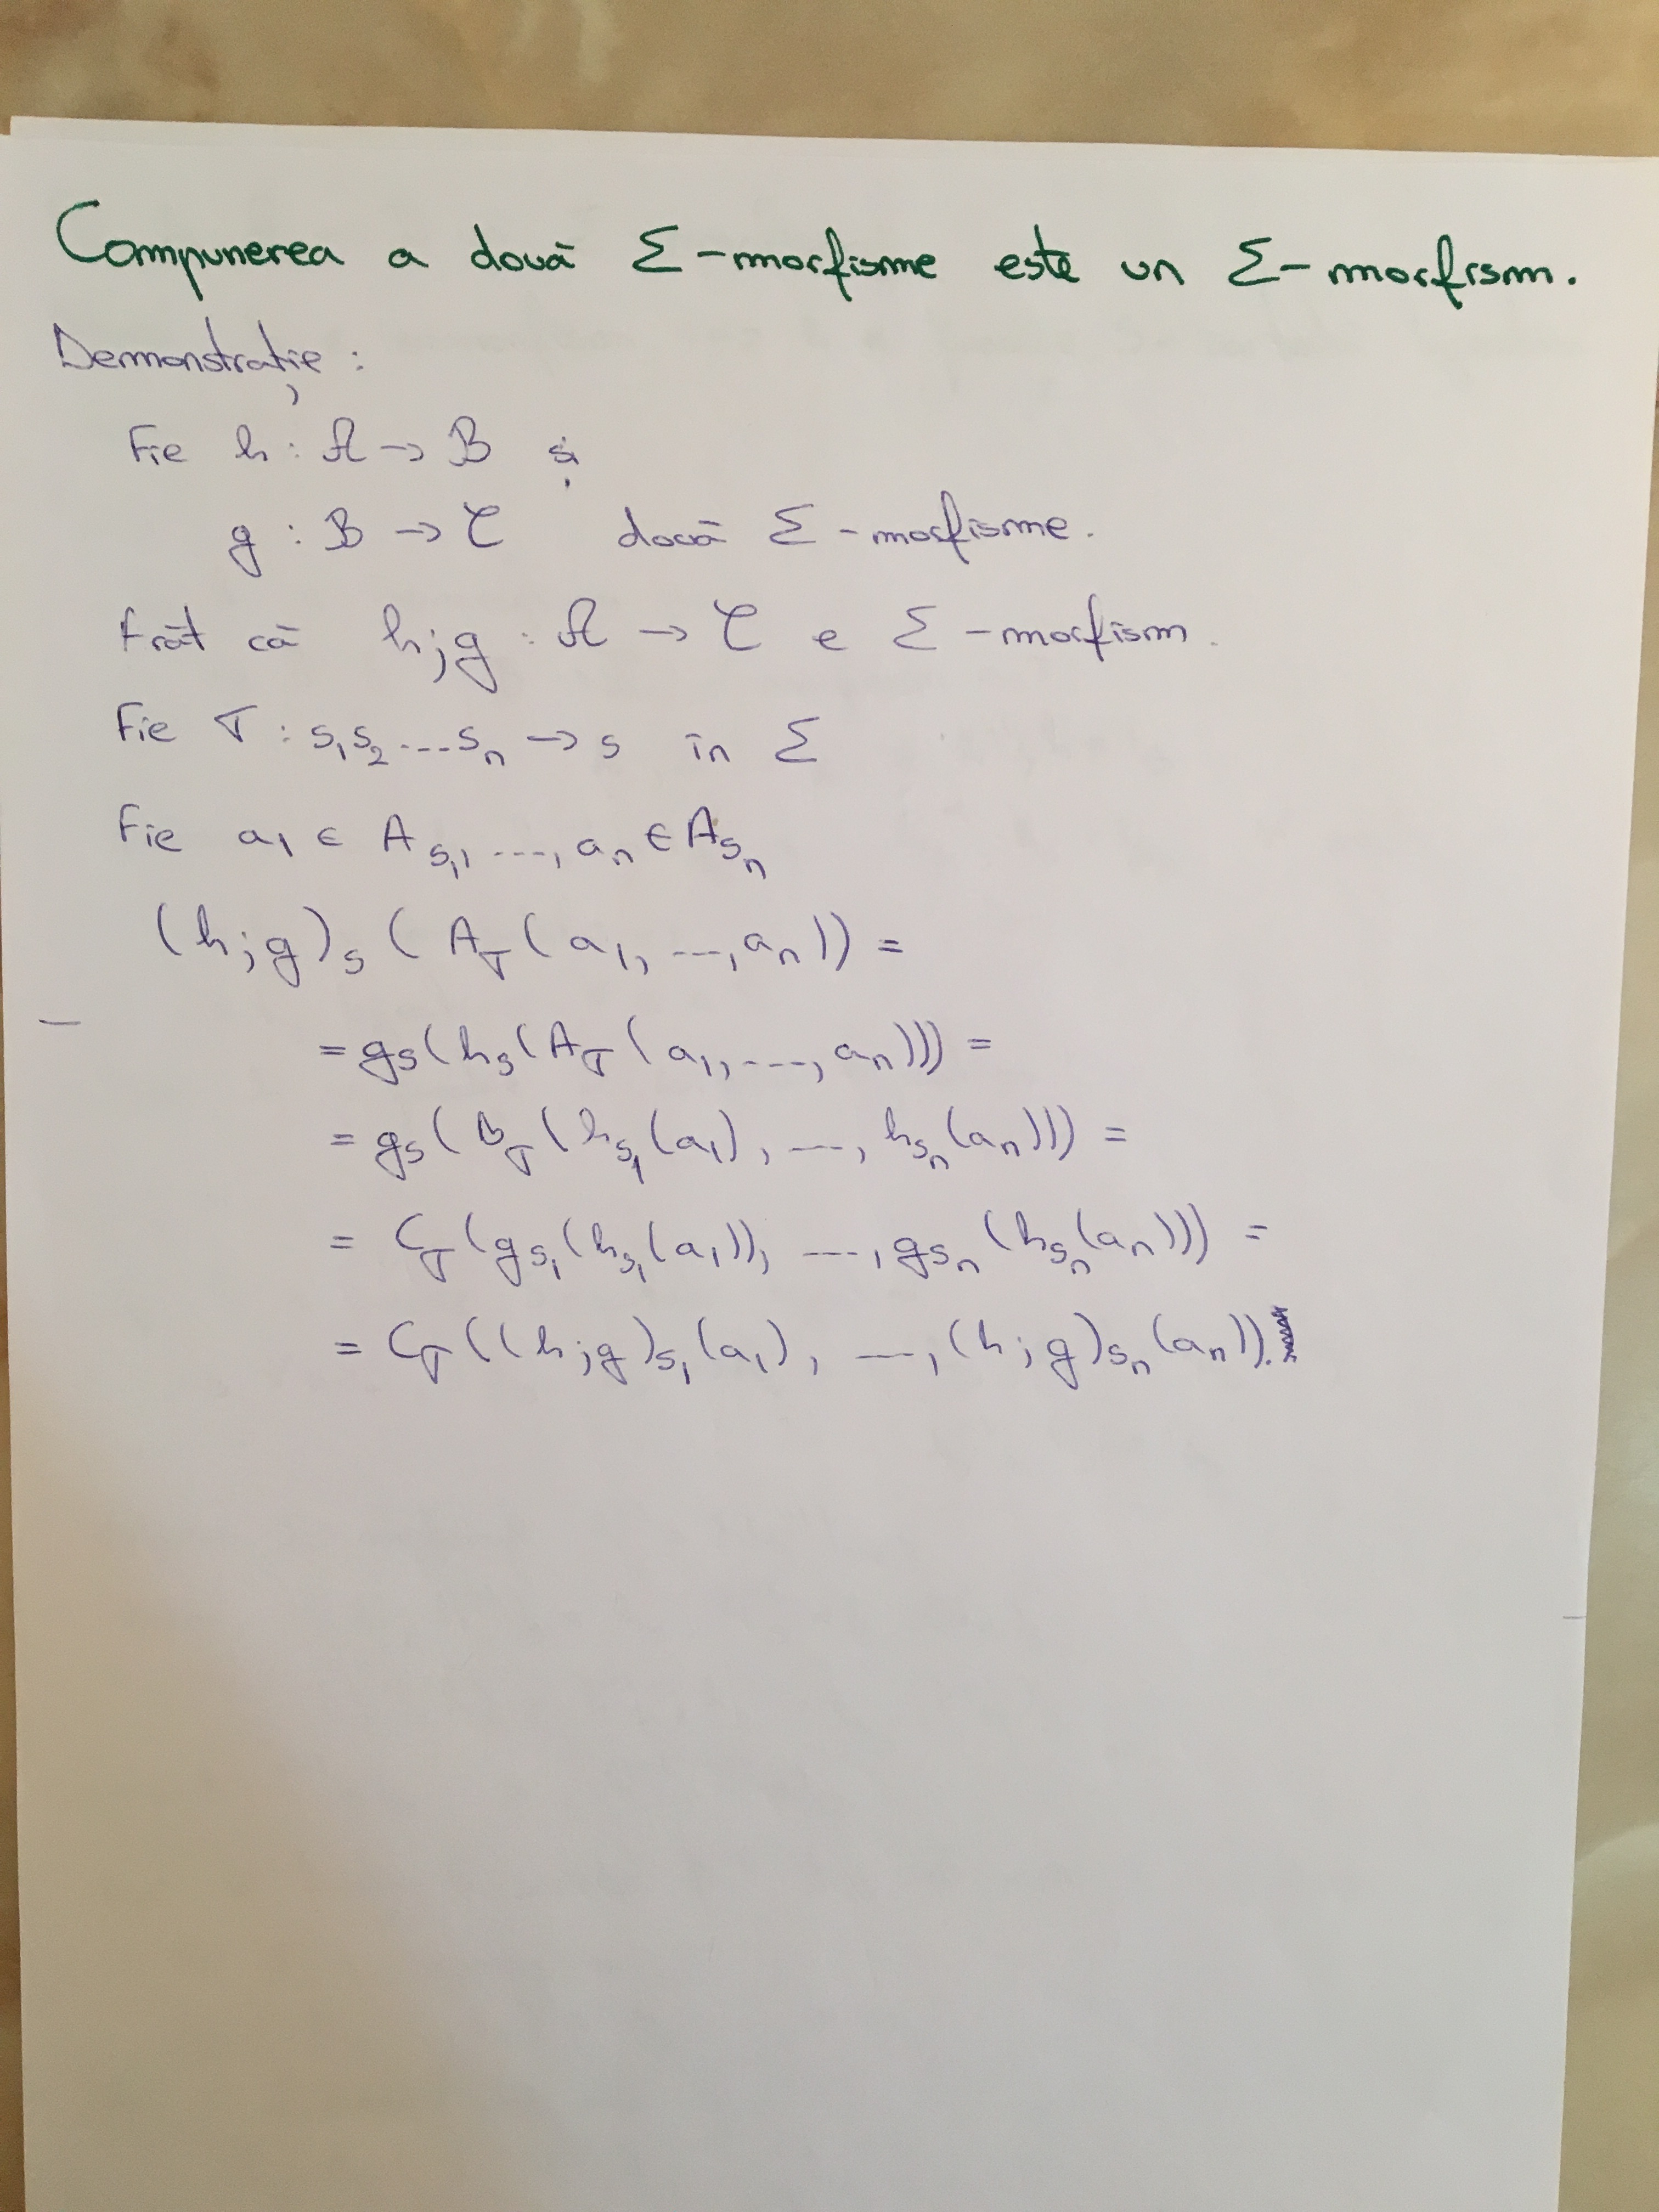 Compunerea a două Σ-morfisme este un Σ-morfism.
Demonstrație:
Fie h : 𝒜 → ℬ și
g : ℬ → 𝒞 două Σ-morfisme.
Arăt că h;g : 𝒜 → 𝒞 e Σ-morfism.
Fie σ : s₁s₂...sₙ → s în Σ
Fie a₁ ∈ A_{s₁}, ..., aₙ ∈ A_{sₙ}
(h;g)_s (A_σ(a₁, ..., aₙ)) =
= g_s(h_s(A_σ(a₁, ..., aₙ))) =
= g_s(B_σ(h_{s₁}(a₁), ..., h_{sₙ}(aₙ))) =
= C_σ(g_{s₁}(h_{s₁}(a₁)), ..., g_{sₙ}(h_{sₙ}(aₙ))) =
= C_σ((h;g)_{s₁}(a₁), ..., (h;g)_{sₙ}(aₙ)).